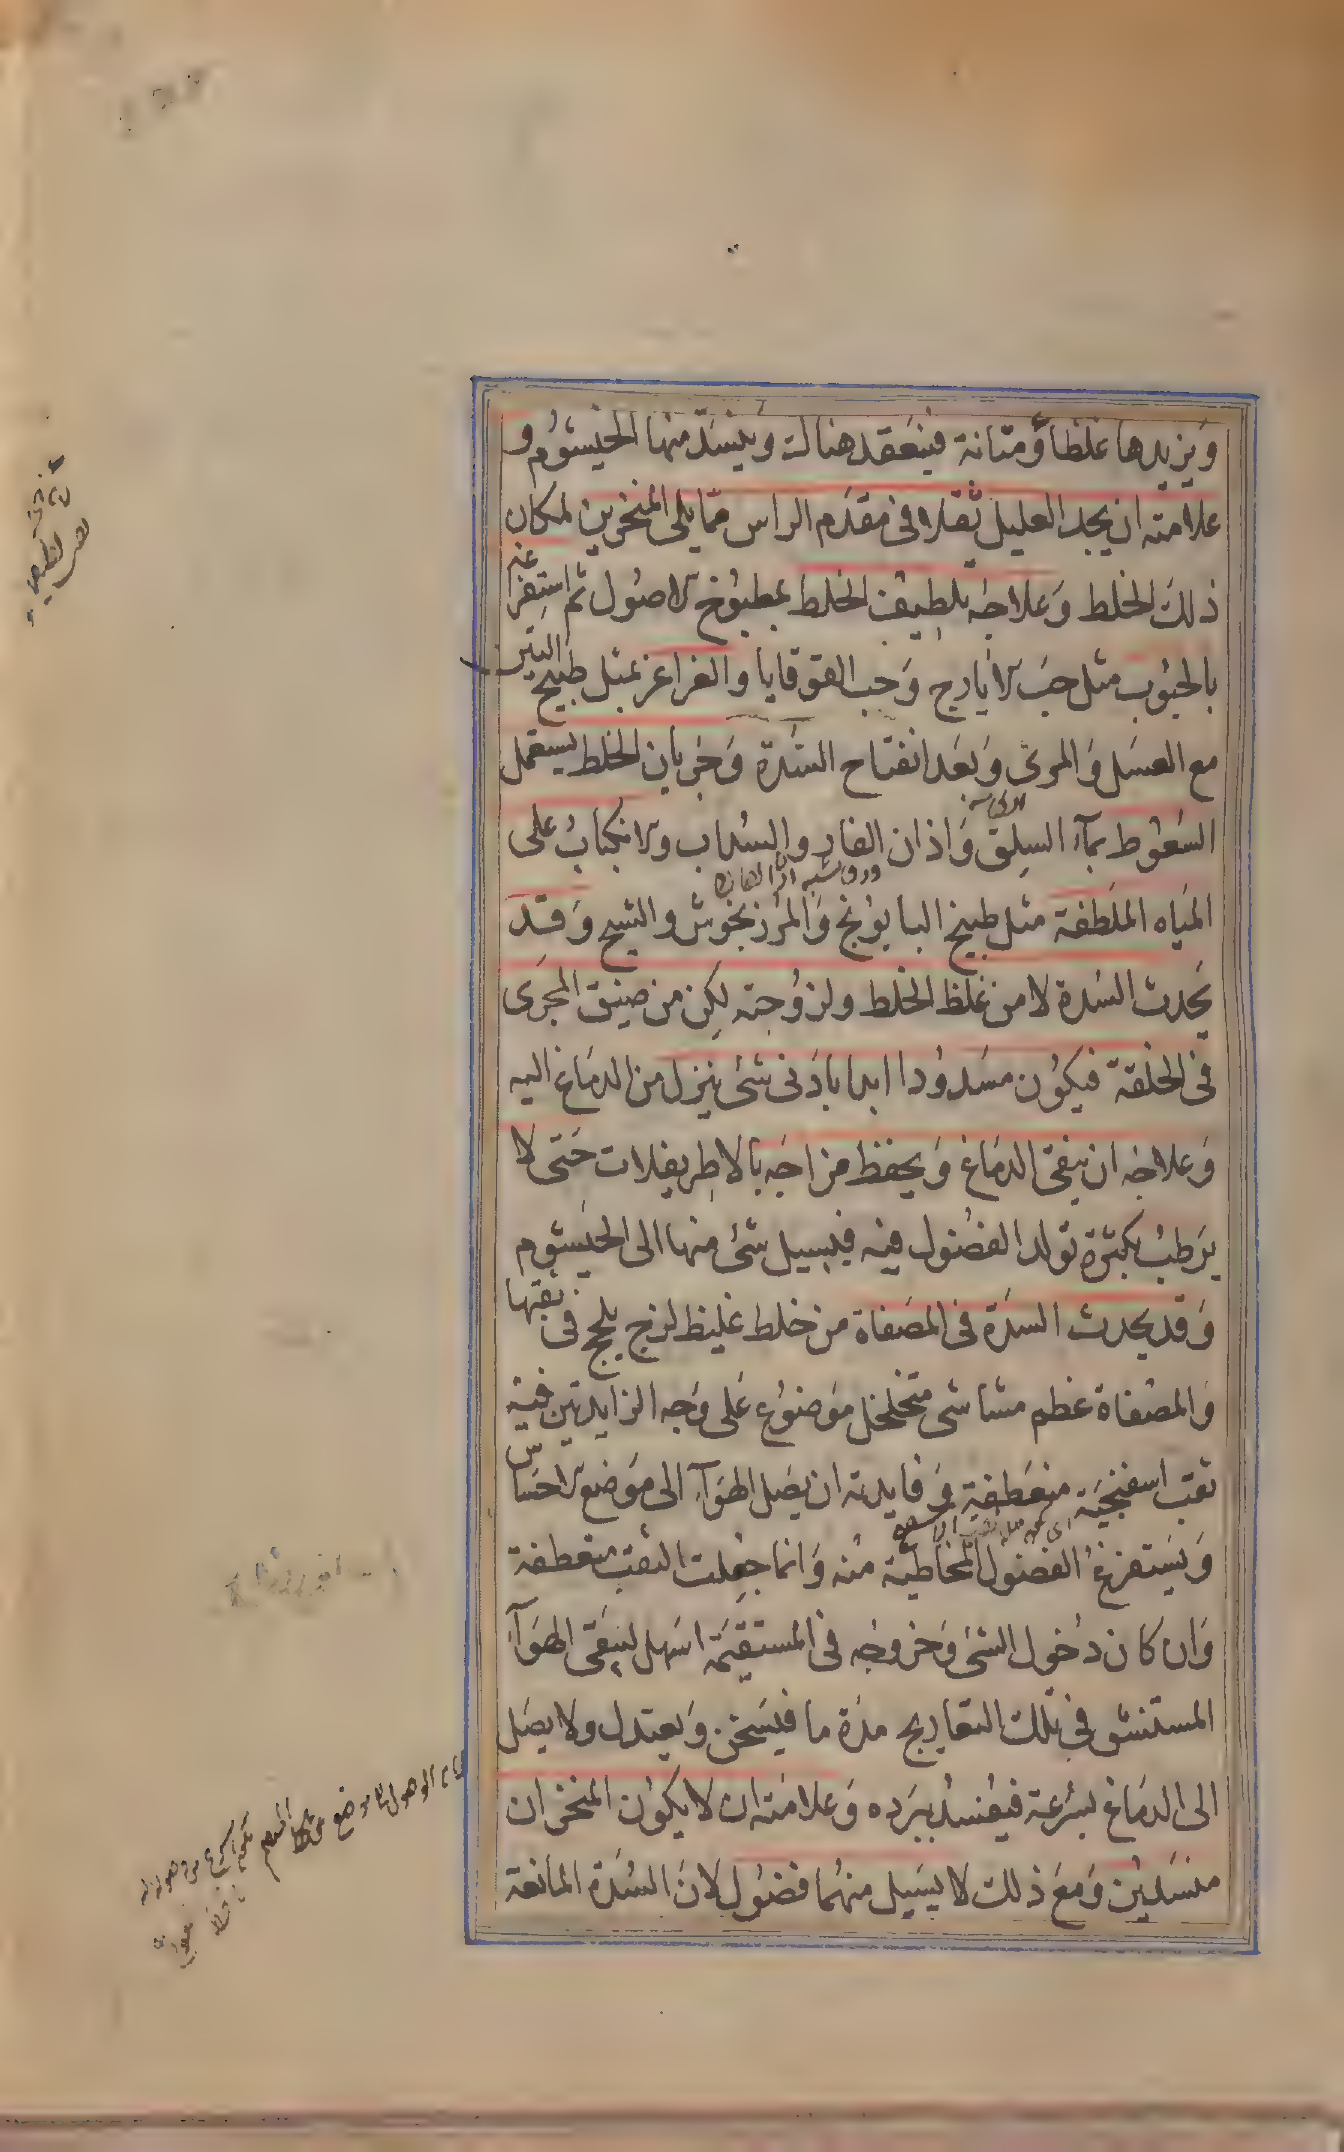 وَيزيدها غلظاً وَّمتانة فينعَقد هنالك وَينسَدّ منها الخيشوُم و
علامته ان يجد العليل ثقلا فى مقدَم الراس ممّا يلى المنخرين لمكان
ذلكَ الخلط وَعلاجُه تلطيف الخلط بمطبوُخ الاصُول ثم استفراغه
بالحبُوب مثل حَبّ الايارج وَحب القوقايا والغراغر بمثل طبيخ التين
مع العسَل وَالمرى وَبَعد انفتاح السَّدة وَجريان الخلط يستعمل
السَعُوط بمآء السِلق وَاذان الفار والسُداب والانكبابُ على
المَياه الملَطفة مثل طبيخ البابوُنج وَالمرزنجوُش والشيح وَقَد
يَحدث السُدة لا من غلظ الخلط ولزوُجته لكِن من ضيق المجرَى
فى الخلقة فيكوُن مسَدوُدا ابدا بادَنى شئ ينزل من الدمَاغ اليه
وَعلاجُه ان ينقى الدمَاغ وَيحفظ مزاجَه بالاطريفلات حَتى لا
يَرطبُ بكثرة تولد الفضُول فيه فيسيل شئ منها الى الخيَشوم
وَقد يحدث السدَة فى المصَفاة من خلط غليظ لزج يلحج فى ثقبها
وَالمصْفاة عظم مشاشى متخلخل موَضوُع عَلى وَجه الزايدتين فيه
ثقب اسفنجيَة منعَطفة وَفايدته ان يصَل الهوَآء الى موَضع الاحسَاس
وَيسَتفرغ الفضُول المخاطية منه وَانما جعِلت الثقب منعطفة
وَان كان دخُول الشئ وَخروجُه فى المستقيمَة اسَهل ليبَقى الهوَآء
المستنشق فى تلك التعاريج مدَة ما فيسَخن وَيعتدل ولا يصَل
الى الدمَاغ بسُرعَة فيفسُد ببرَده وَعلامَته ان لا يكوُن المنخران
منسَدين وَمعَ ذلك لا يسَيل منهُما فضوُل لانَ السُدَة المانعة